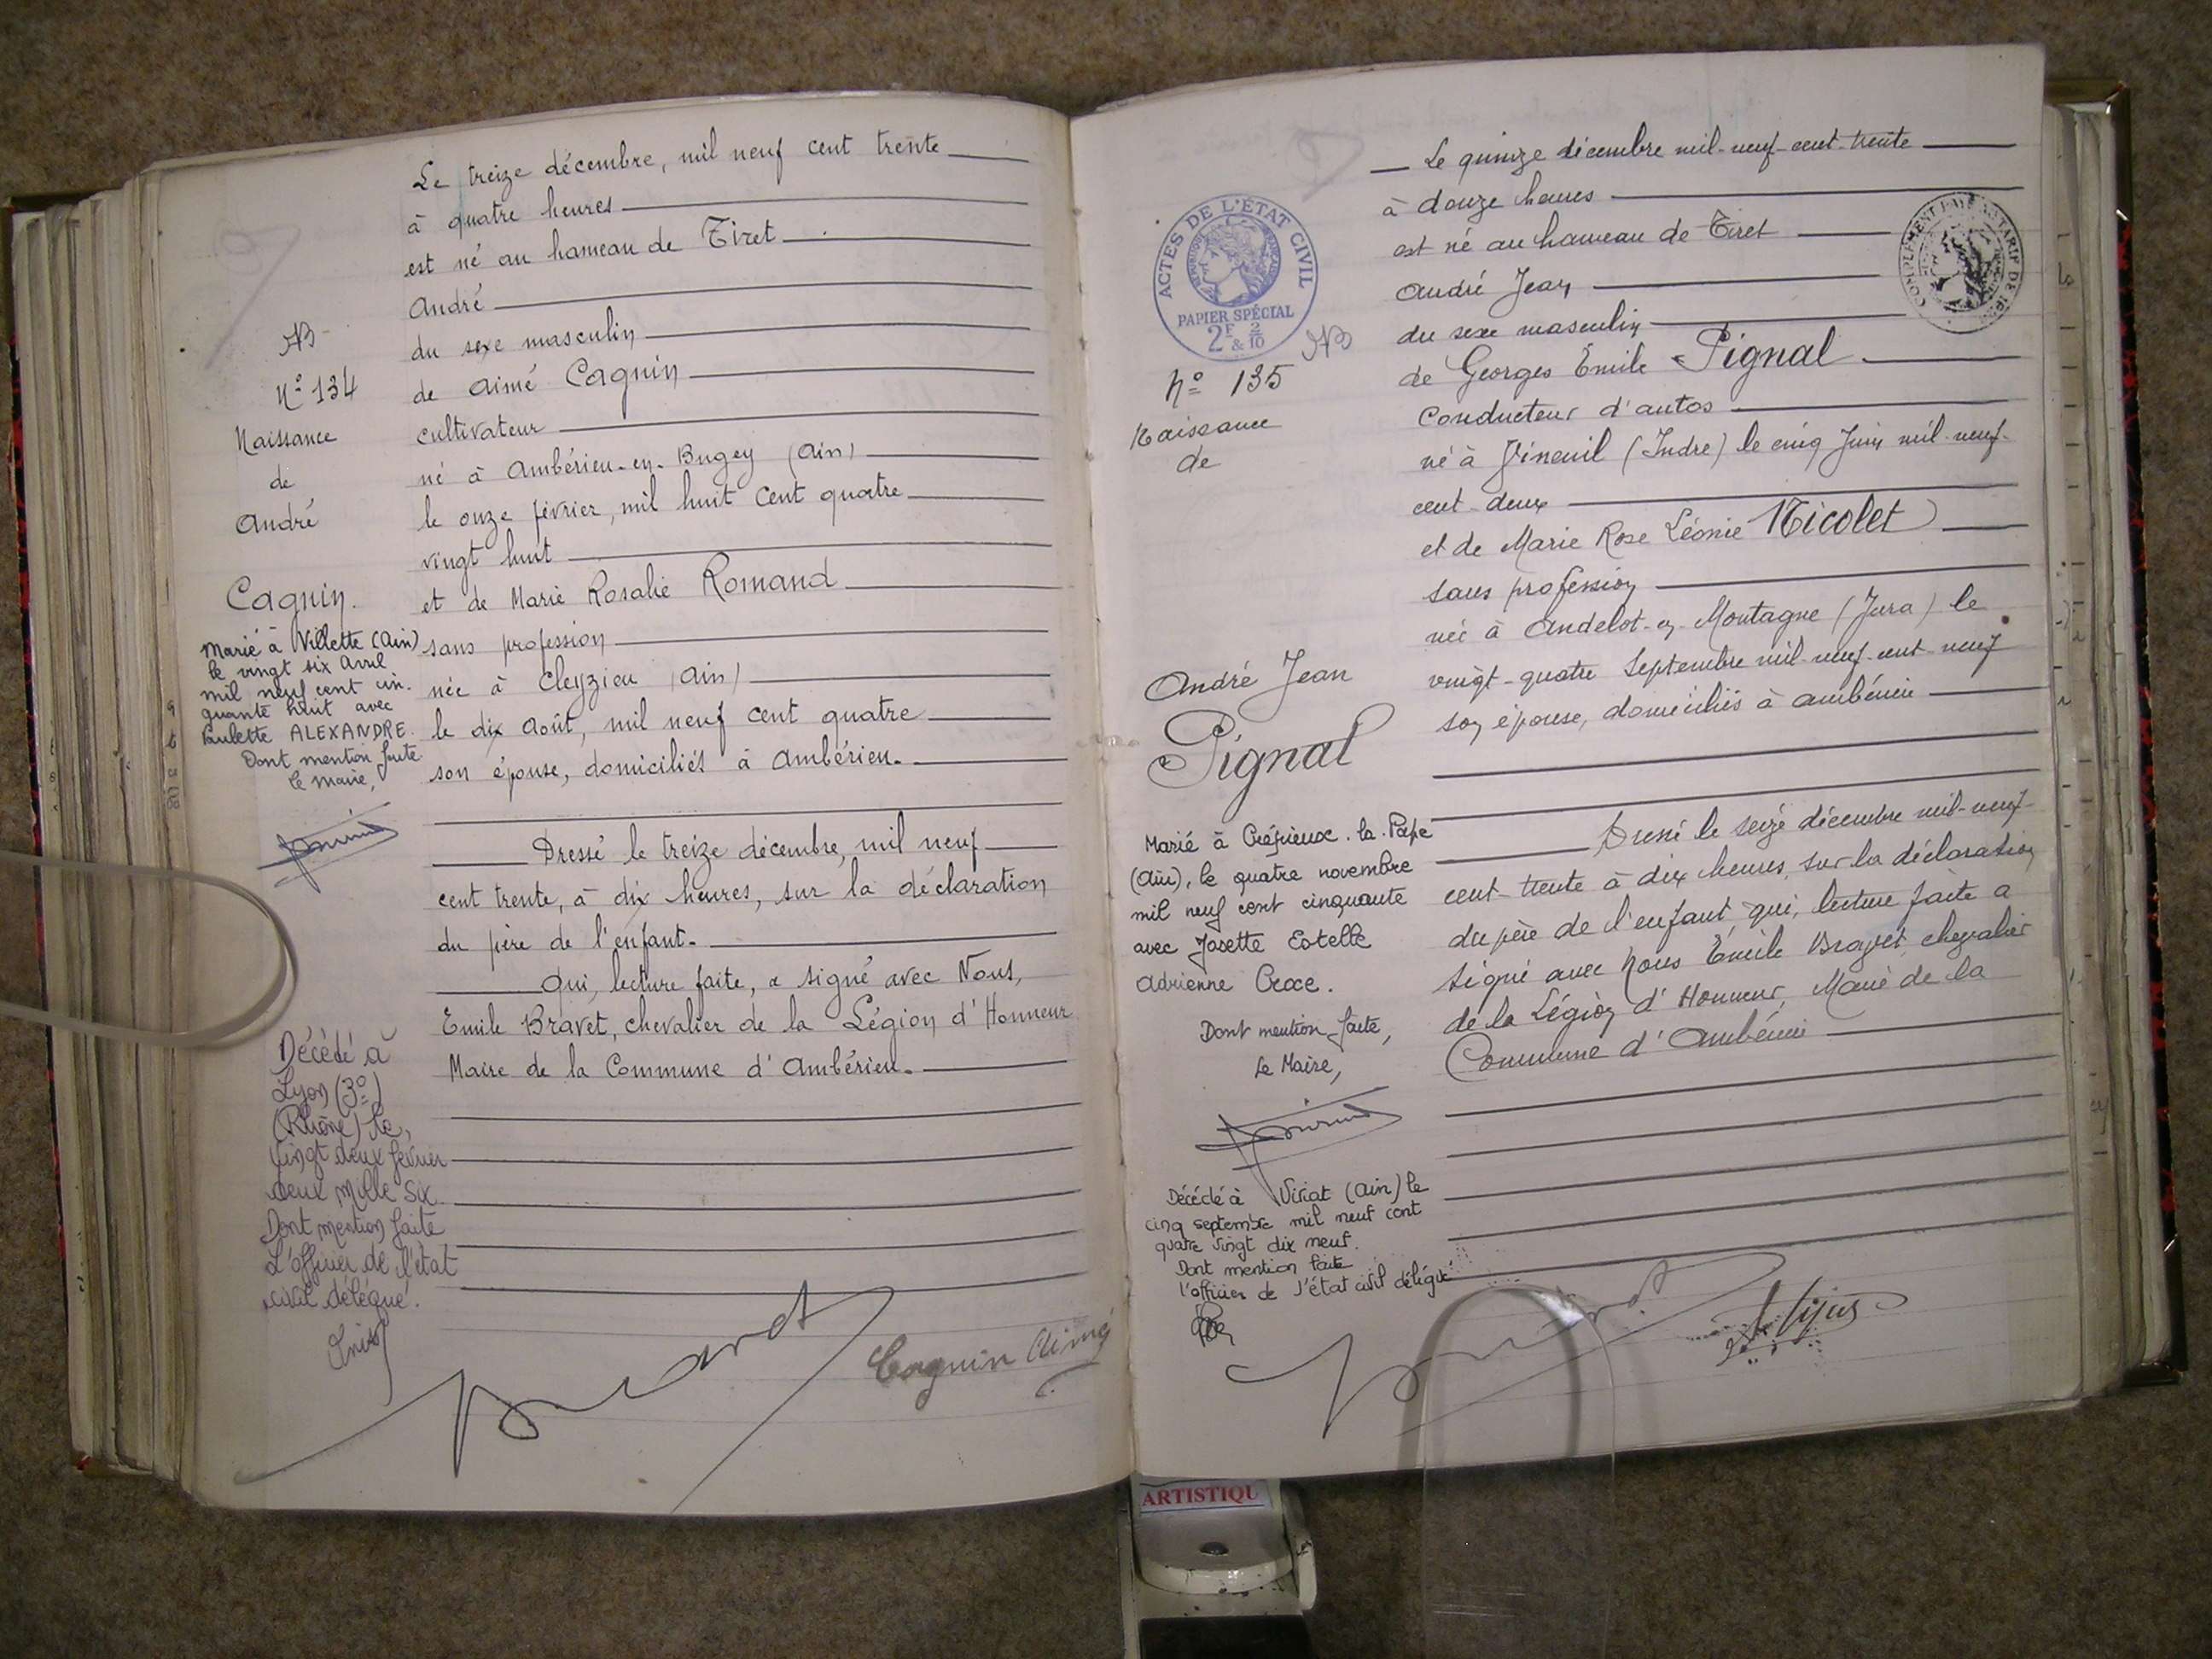 Le treize décembre, mil neuf cent trente
à quatre heures
est né au hameau de Tiret
André
du sexe masculin
de Aimé Cagnin
cultivateur
né à Ambérieu-en-Bugey (Ain)
le onze février, mil huit cent quatre
vingt huit
et de Marie Rosalie Romand
sans profession
née à Cleyzieu (Ain)
le dix Août, mil neuf cent quatre
son épouse, domiciliés à Ambérieu.
Dressé le treize décembre, mil neuf
cent trente, à dix heures, sur la déclaration
du père de l'enfant.
Qui, lecture faite, a signé avec Nous,
Emile Bravet, chevalier de la Légion d'Honneur
Maire de la Commune d'Ambérieu.
N° 134
Naissance
de
André
Cagnin.
Marié à Villette (Ain)
le vingt six Avril
mil neuf cent cin-
quante huit avec
Paulette ALEXANDRE.
Dont mention faite
le maire,
Décédé à
Lyon (3°)
(Rhône) le,
vingt deux février
deux mille six.
Dont mention faite
L'officier de l'état
civil délégué.
Bravet
Cagnin Aimé
Le quinze décembre mil-neuf-cent-trente
à douze heures
est né au hameau de Tiret
André Jean
du sexe masculin
de Georges Émile Pignal
Conducteur d'autos
né à Vineuil (Indre) le cinq Juin mil-neuf-
cent-deux
et de Marie Rose Léonie Nicolet
sans profession
née à Andelot-en-Montagne (Jura) le
vingt-quatre Septembre mil-neuf-cent-neuf
son épouse, domiciliés à Ambérieu
Dressé le seize décembre mil-neuf-
cent-trente à dix heures, sur la déclaration
du père de l'enfant qui, lecture faite a
signé avec Nous Émile Bravet, chevalier
de la Légion d'Honneur, Maire de la
Commune d'Ambérieu
ACTES DE L'ÉTAT CIVIL
RÉPUBLIQUE FRANÇAISE
PAPIER SPÉCIAL
2F & 2/10
COMPLÉMENT PAYÉ AU TARIF DE
N° 135
Naissance
de
André Jean
Pignal
Marié à Crépieux-la-Pape
(Ain), le quatre novembre
mil neuf cent cinquante
avec Josette Estelle
Adrienne Croce.
Dont mention faite,
Le Maire,
Décédé à Viriat (Ain) le
cinq septembre mil neuf cent
quatre vingt dix neuf.
Dont mention faite
l'officier de l'état civil délégué
ARTISTIQU